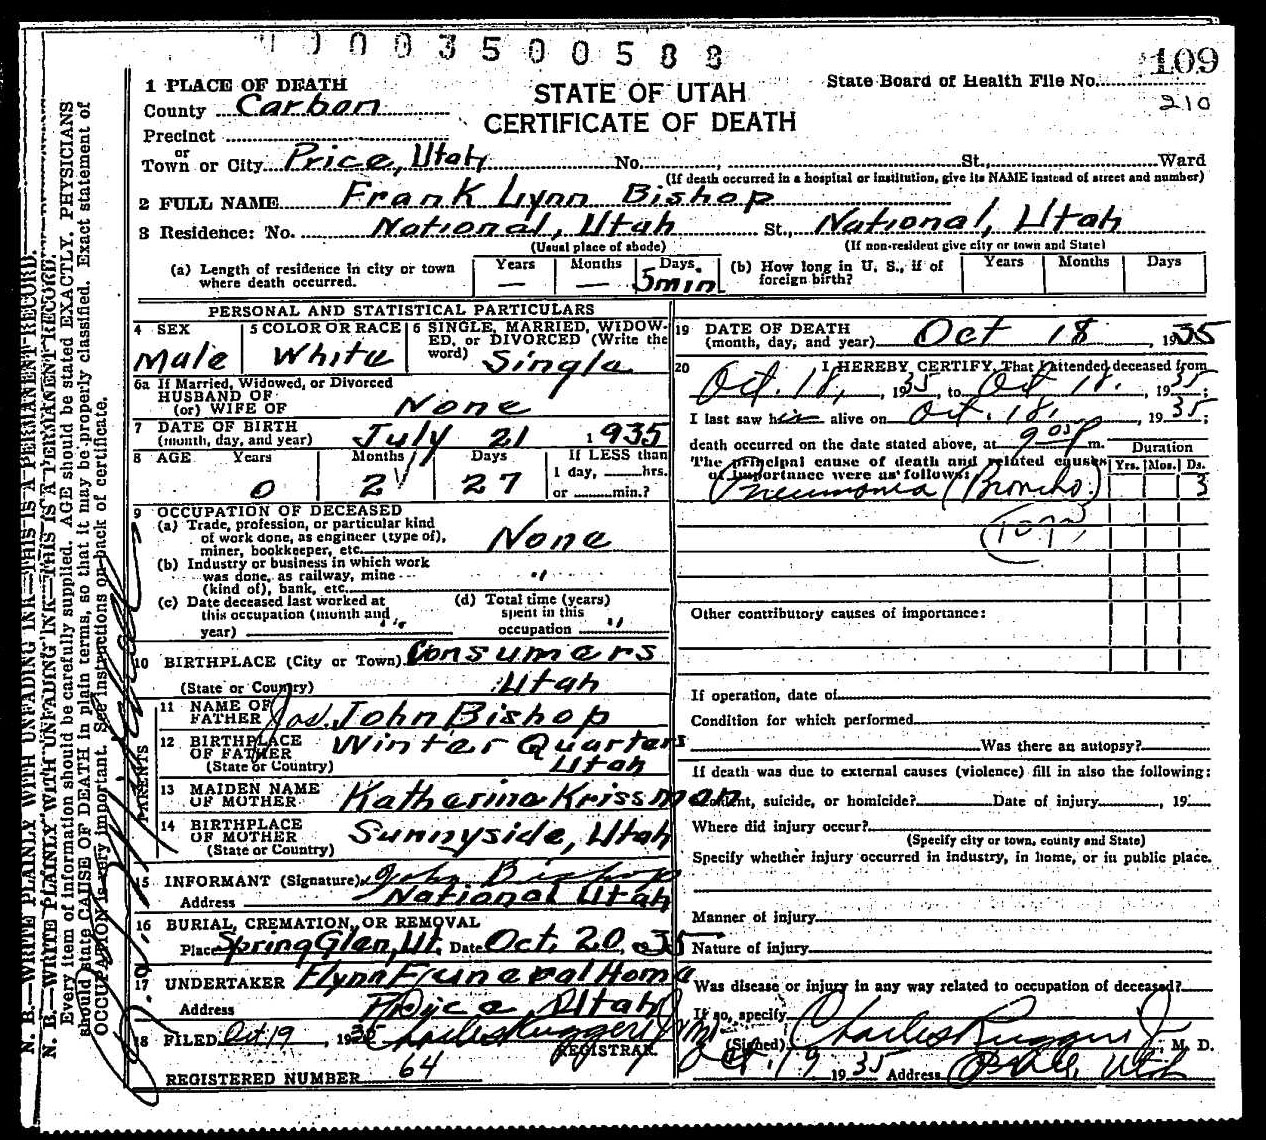 0003500588
109
210
State Board of Health File No.
STATE OF UTAH
CERTIFICATE OF DEATH
1 PLACE OF DEATH
County Carbon
Precinct
or
Town or City Price, Utah No. , St., Ward
(If death occurred in a hospital or institution, give its NAME instead of street and number)
2 FULL NAME Frank Lynn Bishop
3 Residence: No. National, Utah St., National, Utah
(Usual place of abode) (If non-resident give city or town and State)
(a) Length of residence in city or town where death occurred. Years — Months — Days. 5 min (b) How long in U. S., if of foreign birth? Years Months Days
PERSONAL AND STATISTICAL PARTICULARS
4 SEX Male
5 COLOR OR RACE White
6 SINGLE, MARRIED, WIDOWED, or DIVORCED (Write the word) Single
6a If Married, Widowed, or Divorced
HUSBAND OF
(or) WIFE OF None
7 DATE OF BIRTH
(month, day, and year) July 21 1935
8 AGE Years 0 Months 2 Days 27 If LESS than
1 day, hrs.
or min.?
9 OCCUPATION OF DECEASED
(a) Trade, profession, or particular kind
of work done, as engineer (type of),
miner, bookkeeper, etc. None
(b) Industry or business in which work
was done, as railway, mine
(kind of), bank, etc. "
(c) Date deceased last worked at
this occupation (month and
year) "
(d) Total time (years)
spent in this
occupation "
10 BIRTHPLACE (City or Town) Consumers
(State or Country) Utah
PARENTS
11 NAME OF
FATHER Jos. John Bishop
12 BIRTHPLACE
OF FATHER Winter Quarters
(State or Country) Utah
13 MAIDEN NAME
OF MOTHER Katharine Krissman
14 BIRTHPLACE
OF MOTHER Sunnyside, Utah
(State or Country)
15 INFORMANT (Signature) John Bishop
Address National Utah
16 BURIAL, CREMATION, OR REMOVAL
Place Spring Glen, Ut. Date Oct. 20, 35
17 UNDERTAKER Flynn Funeral Home
Address Price, Utah
18 FILED Oct 19, 1935 Charles Ruggeri Jr MD
REGISTRAR.
REGISTERED NUMBER 64
19 DATE OF DEATH
(month, day, and year) Oct 18, 1935
20 I HEREBY CERTIFY, That I attended deceased from
Oct. 18, 1935, to Oct 18, 1935;
I last saw him alive on Oct. 18, 1935;
death occurred on the date stated above, at 9 05 P m.
The principal cause of death and related causes
of importance were as follows: Duration
Yrs. Mos. Ds.
Pneumonia (Broncho) 3
(107)
Other contributory causes of importance:
If operation, date of
Condition for which performed
Was there an autopsy?
If death was due to external causes (violence) fill in also the following:
Accident, suicide, or homicide? Date of injury , 19
Where did injury occur?
(Specify city or town, county and State)
Specify whether injury occurred in industry, in home, or in public place.
Manner of injury
Nature of injury
Was disease or injury in any way related to occupation of deceased?
If so, specify
(Signed) Charles Ruggeri Jr M. D.
Oct. 19 1935 Address Price, Utah
N. B.—WRITE PLAINLY WITH UNFADING INK—THIS IS A PERMANENT RECORD.
N. B.—WRITE PLAINLY WITH UNFADING INK—THIS IS A PERMANENT RECORD.
Every item of information should be carefully supplied. AGE should be stated EXACTLY. PHYSICIANS
should state CAUSE OF DEATH in plain terms, so that it may be properly classified. Exact statement of
OCCUPATION is very important. See instructions on back of certificate.